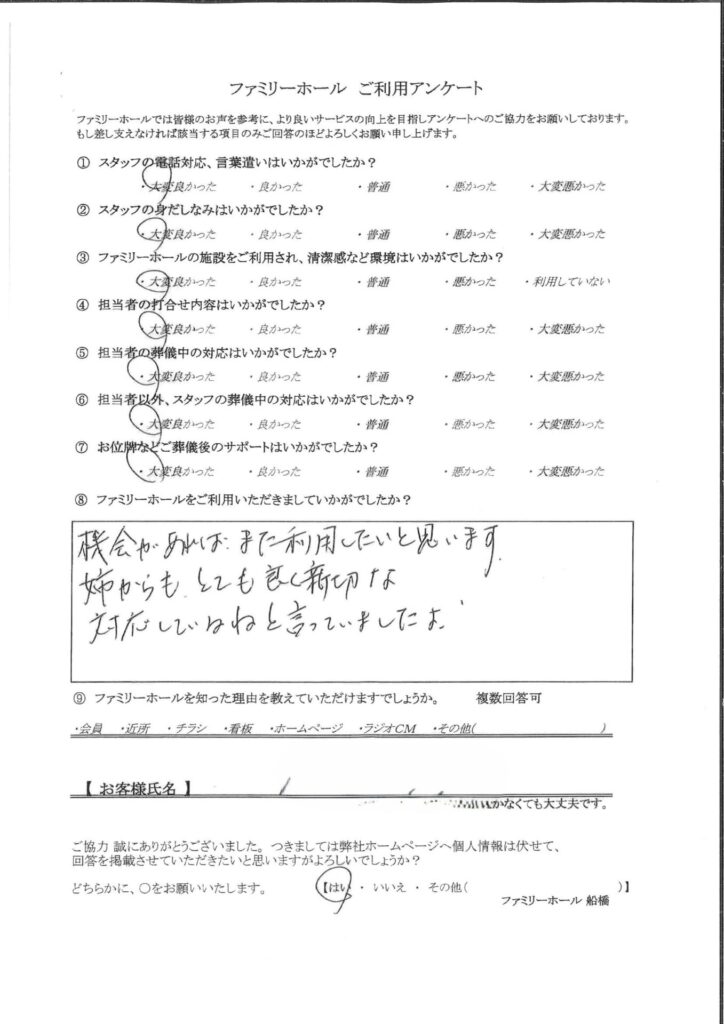 ファミリーホール ご利用アンケート
ファミリーホールでは皆様のお声を参考に、より良いサービスの向上を目指しアンケートへのご協力をお願いしております。
もし差し支えなければ該当する項目のみご回答のほどよろしくお願い申し上げます。
① スタッフの電話対応、言葉遣いはいかがでしたか？
・大変良かった ・良かった ・普通 ・悪かった ・大変悪かった
② スタッフの身だしなみはいかがでしたか？
・大変良かった ・良かった ・普通 ・悪かった ・大変悪かった
③ ファミリーホールの施設をご利用され、清潔感など環境はいかがでしたか？
・大変良かった ・良かった ・普通 ・悪かった ・利用していない
④ 担当者の打合せ内容はいかがでしたか？
・大変良かった ・良かった ・普通 ・悪かった ・大変悪かった
⑤ 担当者の葬儀中の対応はいかがでしたか？
・大変良かった ・良かった ・普通 ・悪かった ・大変悪かった
⑥ 担当者以外、スタッフの葬儀中の対応はいかがでしたか？
・大変良かった ・良かった ・普通 ・悪かった ・大変悪かった
⑦ お位牌などご葬儀後のサポートはいかがでしたか？
・大変良かった ・良かった ・普通 ・悪かった ・大変悪かった
⑧ ファミリーホールをご利用いただきましていかがでしたか？
機会があれば、また利用したいと思います。
姉からも、とても良く親切な
対応しているねと言っていましたよ。
⑨ ファミリーホールを知った理由を教えていただけますでしょうか。 複数回答可
・会員 ・近所 ・チラシ ・看板 ・ホームページ ・ラジオCM ・その他( )
【 お客様氏名 】
かなくても大丈夫です。
ご協力 誠にありがとうございました。つきましては弊社ホームページへ個人情報は伏せて、
回答を掲載させていただきたいと思いますがよろしいでしょうか？
どちらかに、○をお願いいたします。 【はい ・ いいえ ・ その他( )】
ファミリーホール 船橋